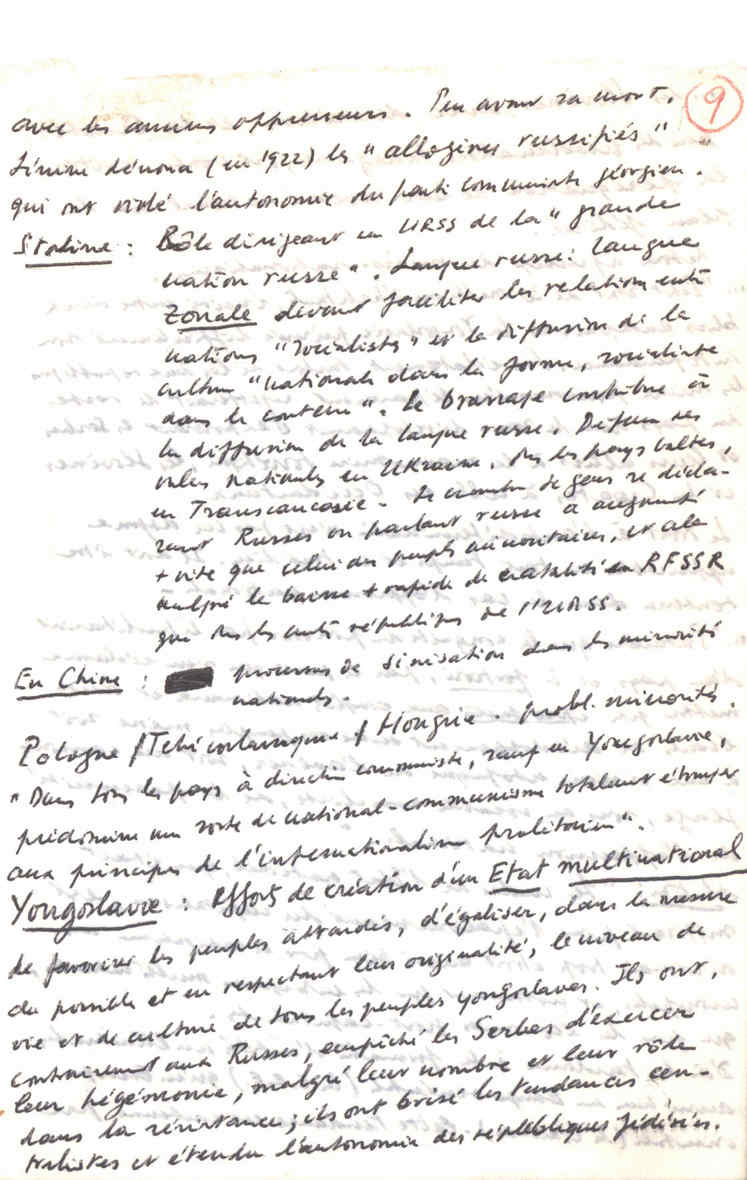 9
avec les anciens oppresseurs. Peu avant sa mort,
Lénine dénonça (en 1922) les "allogènes russifiés"
qui ont violé l'autonomie du parti communiste géorgien.
Staline : Rôle dirigeant en URSS de la "grande
nation russe". Langue russe : langue
zonale devant faciliter les relations entre
nations "socialistes" et la diffusion de la
culture "nationale dans la forme, socialiste
dans le contenu". Le brassage contribue à
la diffusion de la langue russe. Défense des
nationales en Ukraine, ds les pays baltes,
en Transcaucasie. Le nombre de gens se décla-
rant Russes ou parlant russe a augmenté
+ vite que celui des peuples minoritaires, et cela
malgré la baisse + rapide de natalité en RFSSR
que ds les autres républiques de l'URSS.
En Chine : processus de sinisation dans les minorités
nationales.
Pologne / Tchécoslovaquie / Hongrie. probl. minorités.
"Dans tous les pays à direction communiste, sauf en Yougoslavie,
prédomine une sorte de national-communisme totalement étranger
aux principes de l'internationalisme prolétarien".
Yougoslavie : efforts de création d'un Etat multinational
de favoriser les peuples attardés, d'égaliser, dans la mesure
du possible et en respectant leur originalité, le niveau de
vie et de culture de tous les peuples yougoslaves. Ils ont,
contrairement aux Russes, empêché les Serbes d'exercer
leur hégémonie, malgré leur nombre et leur rôle
dans la résistance ; ils ont brisé les tendances cen-
tralistes et étendu l'autonomie des républiques fédérées.